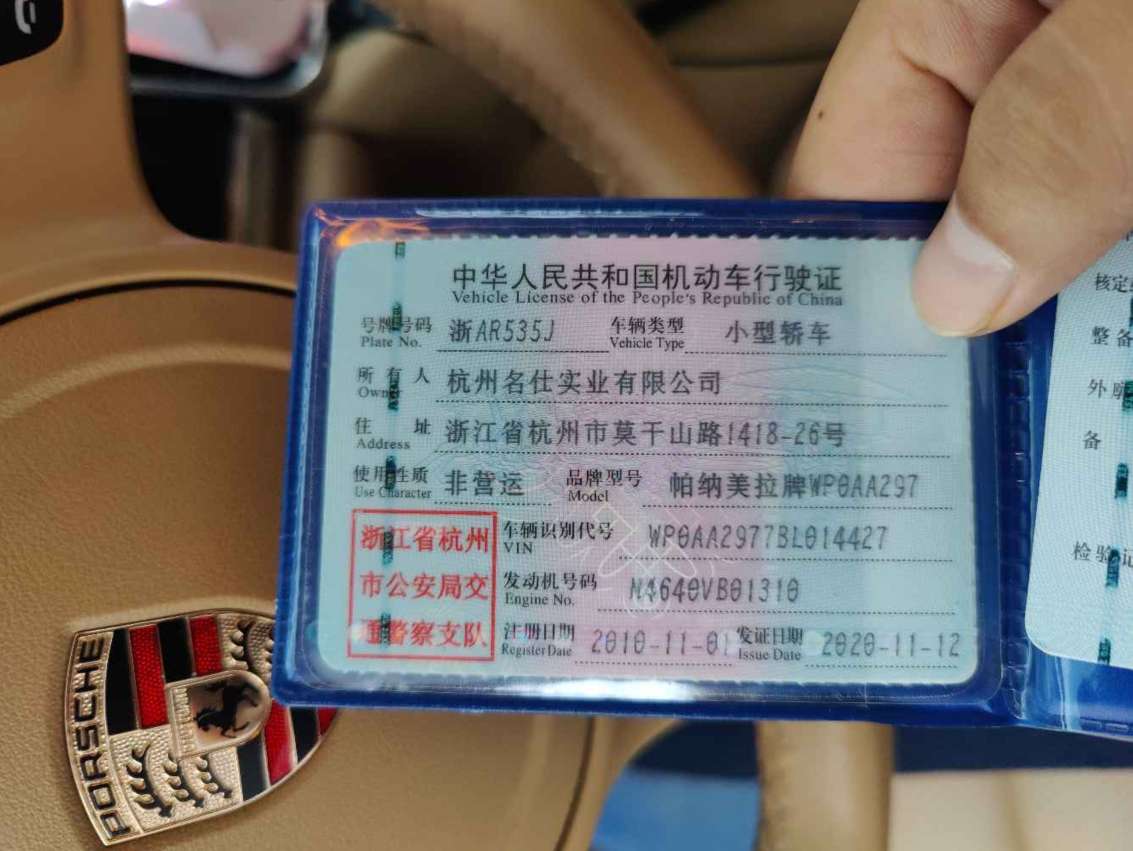 中华人民共和国机动车行驶证
Vehicle License of the People's Republic of China
号牌号码 浙AR535J 车辆类型 小型轿车
Plate No. Vehicle Type
所有人 杭州名仕实业有限公司
Owner
住址 浙江省杭州市莫干山路1418-26号
Address
使用性质 非营运 品牌型号 帕纳美拉牌WP0AA297
Use Character Model
浙江省杭州 车辆识别代号 WP0AA2977BL014427
VIN
市公安局交 发动机号码 N4640VB01310
Engine No.
通警察支队 注册日期 2010-11-01 发证日期 2020-11-12
Register Date Issue Date
核定
整备
外廓
备
检验记
PORSCHE